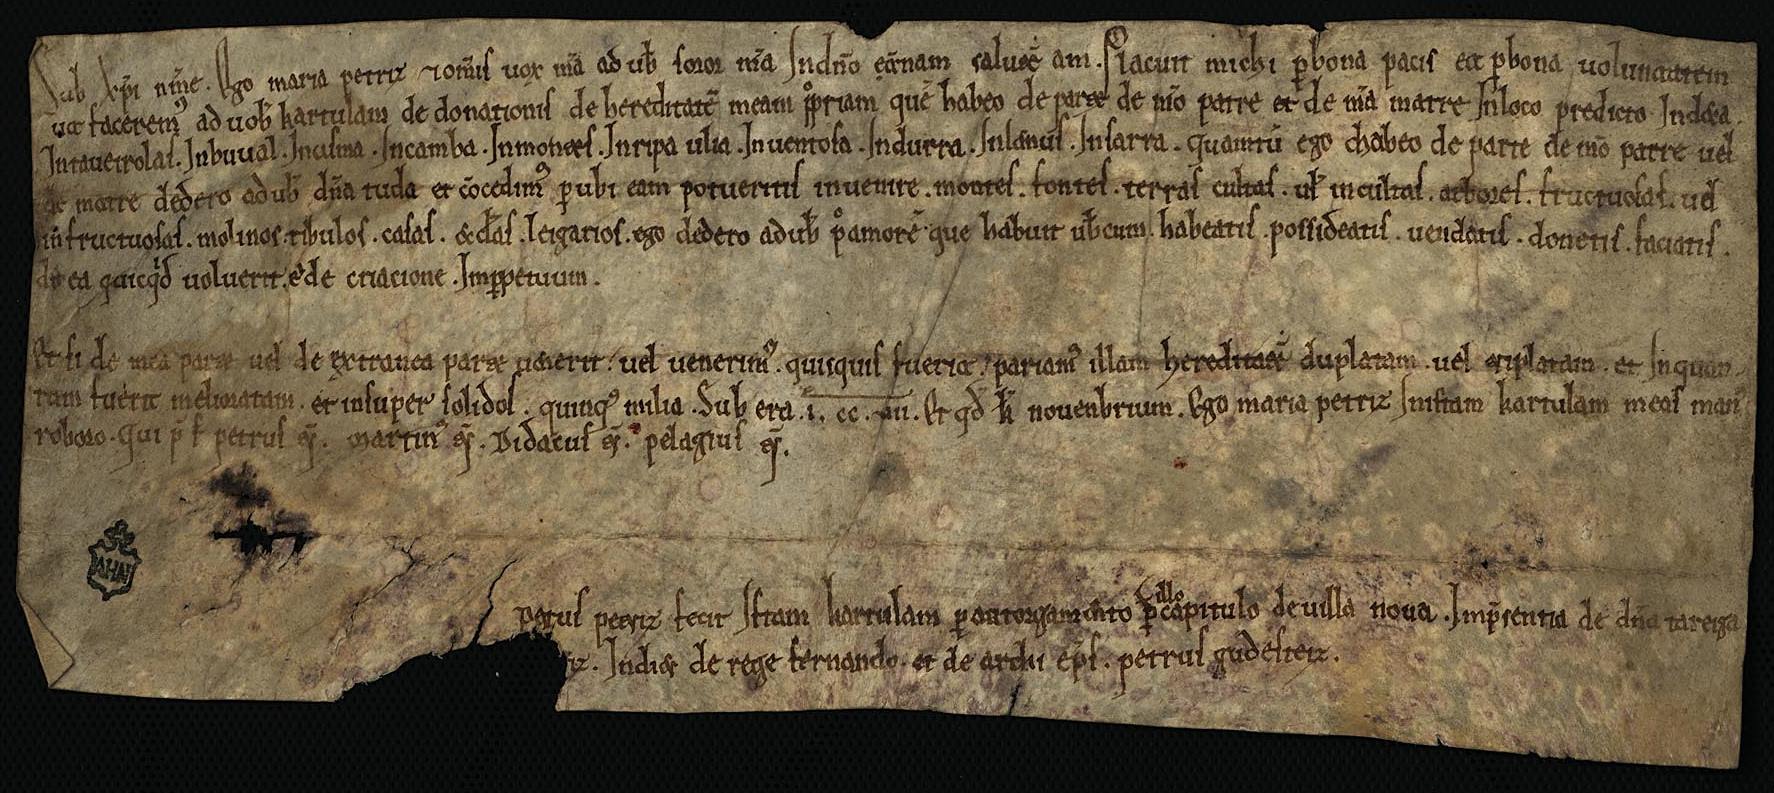 Sub xp̄i nn̄e. Ego maria petriz uox mā ad uob̄ soror mā Indn̄o et̄nam salutē am. Placuit michi p̱ bona pacis et p̱ bona uoluntatem
ut facerem⁹ ad uob̄ kartulam de donationis de hereditatē meam p̱priam quē habeo de parte de mō patre et de mā matre Inloco predicto
Intaueirolas. Inbuual. Incusma. Incamba. Inmontes. Inripa ulia. Inuentosa. Indurra. Insarra. quantū ego chabeo de parte de mō patre uel
de matre dedero ad ub̄ dn̄a tuda et cōcedim⁹ p̱ ubi eam potueritis inuenire. montes. fontes. terras cultas. ul̄ incultas. arbores. fructuosas. uel
infructuosas. molinos. casas. leigarios. ego dedero ad ub̄ p̱ amorē que habuit habeatis. possideatis. uendatis. donetis. faciatis.
de ea quicq̄d uoluerit. de criacione. Imp̱petuum.
Et si de mea parte uel de extranea parte uenerit. uel uenerim⁹. quisquis fuerit. pariam⁹ illam hereditatē duplatam. uel triplatam. et Inquan-
tum fuerit melioratam. et insuper solidos. quinq⁹ milia. Sub era. i. cc. Et q̄d k̄ nouenbrium. Ego maria petriz Inistam kartulam meas man⁹
roboro. Qui p̄ f̄ petrus t̄s. martin⁹ t̄s. Didacus t̄s. pelagius t̄s.
petrus petriz fecit Istam kartulam p̱ autorgamento p̱ illo capitulo de uilla noua. Imp̄sentia de dn̄a tareiga
iz. Indie de rege fernando. et de archi ep̄s. petrus gudesteiz.
AHN